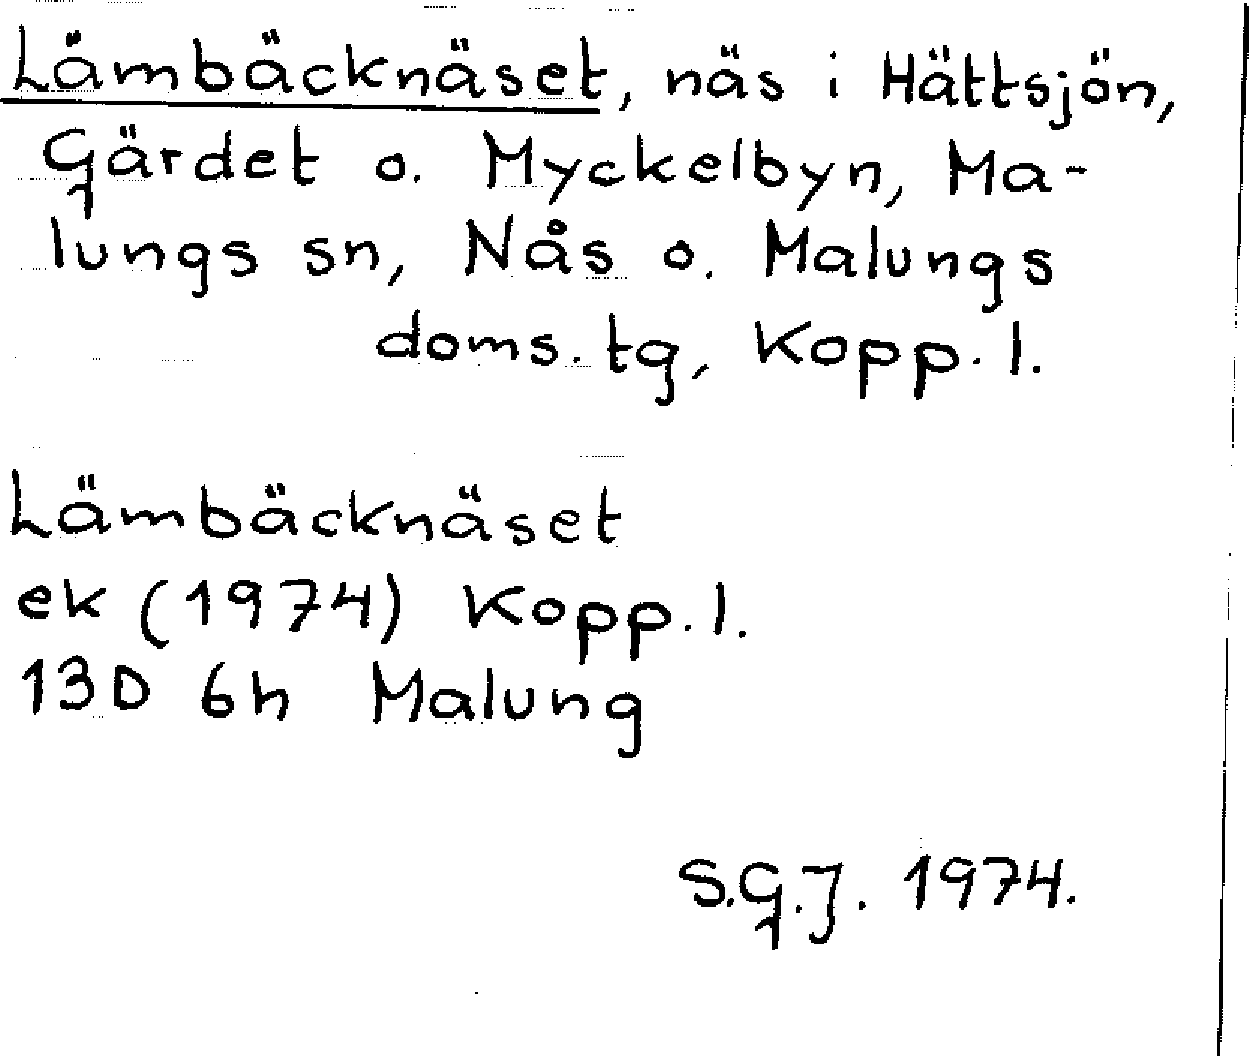 Lämbäcknäset, näs i Hättsjön,
Gärdet o. Myckelbyn, Ma-
lungs sn, Nås o. Malungs
doms. tg, Kopp. l.
Lämbäcknäset
ek (1974) Kopp. l.
13D 6h Malung
S.G.J. 1974.